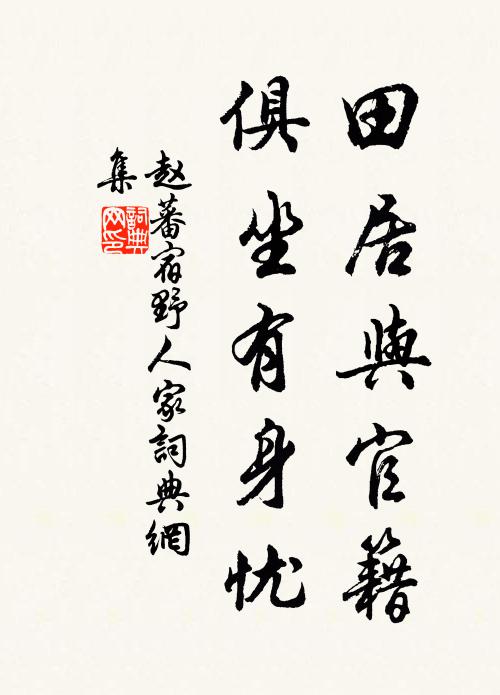 田居與官籍
俱坐有身忧
赵蕃宿野人家詞典網
集
詞典网印